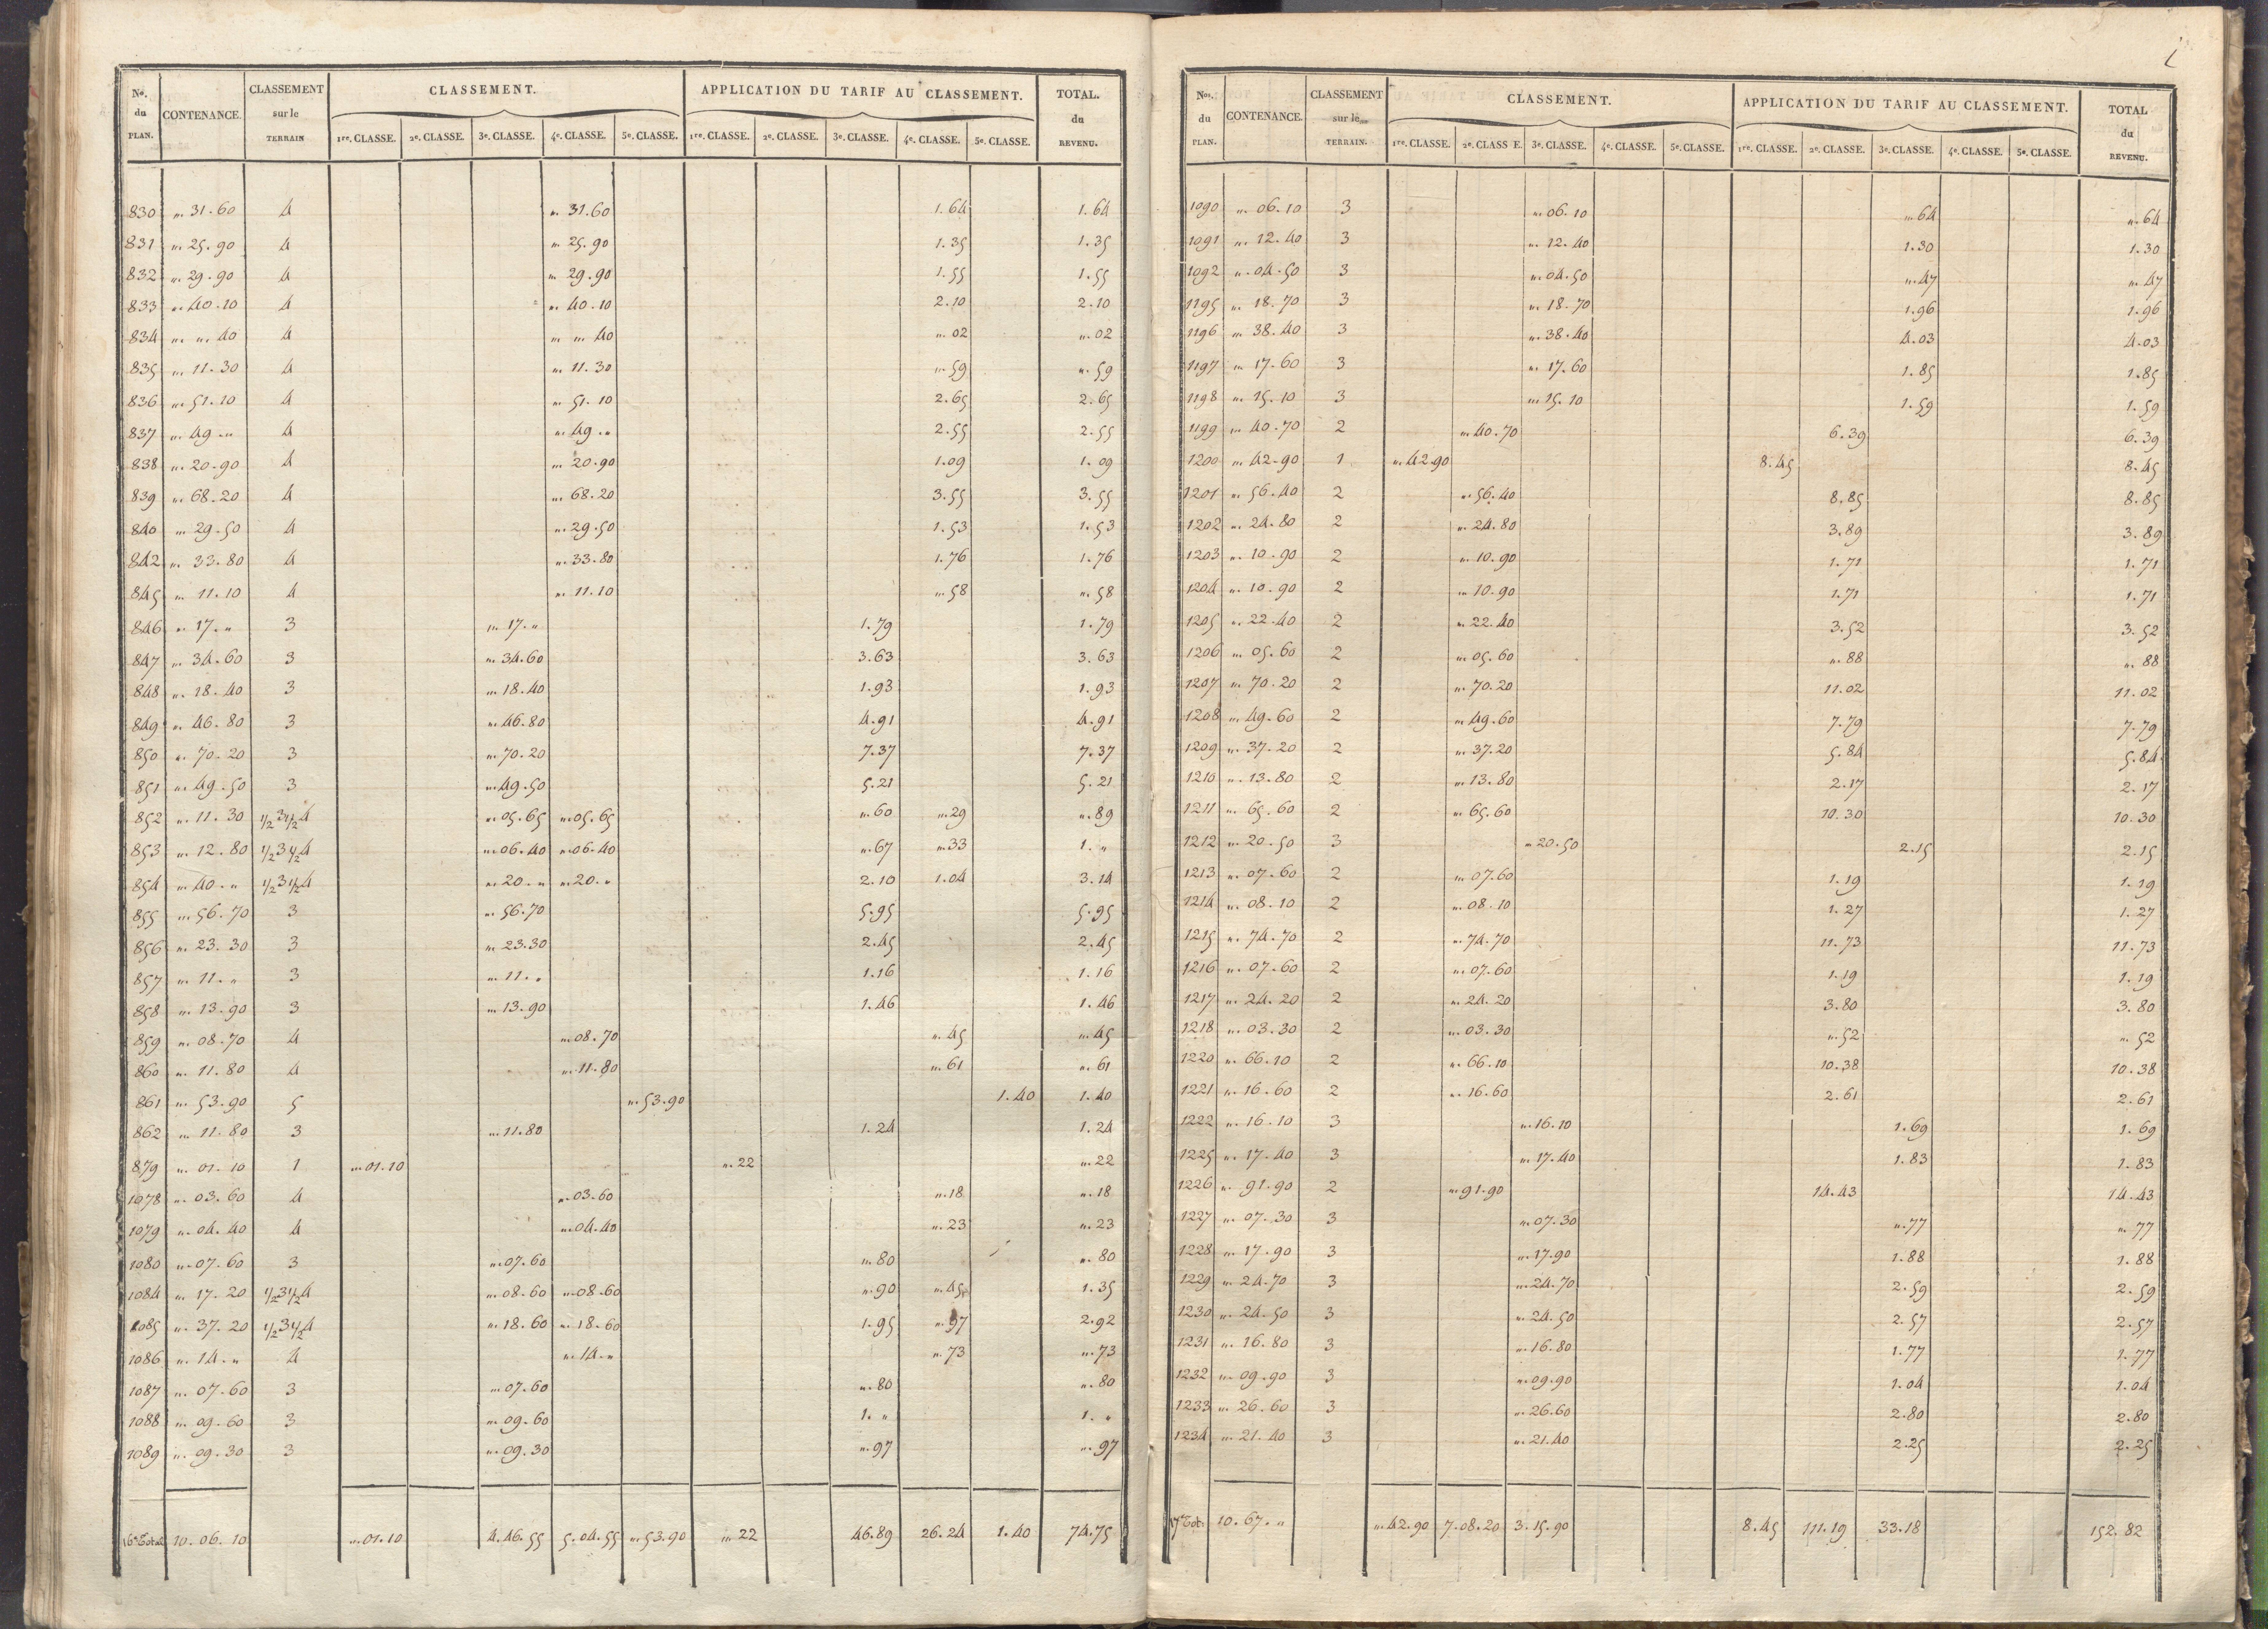 Nos. du PLAN. CONTENANCE. CLASSEMENT sur le TERRAIN CLASSEMENT. APPLICATION DU TARIF AU CLASSEMENT. TOTAL. du REVENU.
1re. CLASSE. 2e. CLASSE. 3e. CLASSE. 4e. CLASSE. 5e. CLASSE. 1re. CLASSE. 2e. CLASSE. 3e. CLASSE. 4e. CLASSE. 5e. CLASSE.
830 „. 31.60 4 „. 31.60 1.64 1.64
831 „. 25.90 4 „. 25.90 1.35 1.35
832 „. 29.90 4 „. 29.90 1.55 1.55
833 „. 40.10 4 „. 40.10 2.10 2.10
834 „. „. 40 4 „. „. 40 „. 02 „. 02
835 „. 11.30 4 „. 11.30 „. 59 „. 59
836 „. 51.10 4 „. 51.10 2.65 2.65
837 „. 49.„ 4 „. 49.„ 2.55 2.55
838 „. 20.90 4 „. 20.90 1.09 1.09
839 „. 68.20 4 „. 68.20 3.55 3.55
840 „. 29.50 4 „. 29.50 1.53 1.53
842 „. 33.80 4 „. 33.80 1.76 1.76
845 „. 11.10 4 „. 11.10 „. 58 „. 58
846 „. 17.„ 3 „. 17.„ 1.79 1.79
847 „. 34.60 3 „. 34.60 3.63 3.63
848 „. 18.40 3 „. 18.40 1.93 1.93
849 „. 46.80 3 „. 46.80 4.91 4.91
850 „. 70.20 3 „. 70.20 7.37 7.37
851 „. 49.50 3 „. 49.50 5.21 5.21
852 „. 11.30 1/2 3 1/2 4 „. 05.65 „. 05.65 „. 60 „. 29 „. 89
853 „. 12.80 1/2 3 1/2 4 „. 06.40 „. 06.40 „. 67 „. 33 1.„
854 „. 40.„ 1/2 3 1/2 4 „. 20.„ „. 20.„ 2.10 1.04 3.14
855 „. 56.70 3 „. 56.70 5.95 5.95
856 „. 23.30 3 „. 23.30 2.45 2.45
857 „. 11.„ 3 „. 11.„ 1.16 1.16
858 „. 13.90 3 „. 13.90 1.46 1.46
859 „. 08.70 4 „. 08.70 „. 45 „. 45
860 „. 11.80 4 „. 11.80 „. 61 „. 61
861 „. 53.90 5 „. 53.90 1.40 1.40
862 „. 11.80 3 „. 11.80 1.24 1.24
879 „. 01.10 1 „. 01.10 „. 22 „. 22
1078 „. 03.60 4 „. 03.60 „. 18 „. 18
1079 „. 04.40 4 „. 04.40 „. 23 „. 23
1080 „. 07.60 3 „. 07.60 „. 80 „. 80
1084 „. 17.20 1/2 3 1/2 4 „. 08.60 „. 08.60 „. 90 „. 45 1.35
1085 „. 37.20 1/2 3 1/2 4 „. 18.60 „. 18.60 1.95 „. 97 2.92
1086 „. 14.„ 4 „. 14.„ „. 73 „. 73
1087 „. 07.60 3 „. 07.60 „. 80 „. 80
1088 „. 09.60 3 „. 09.60 1.„ 1.„
1089 „. 09.30 3 „. 09.30 „. 97 „. 97
16e Total 10.06.10 „. 01.10 4.46.55 5.04.55 „. 53.90 „. 22 46.89 26.24 1.40 74.75
Nos. du PLAN. CONTENANCE. CLASSEMENT sur le TERRAIN. CLASSEMENT. APPLICATION DU TARIF AU CLASSEMENT. TOTAL du REVENU.
1re. CLASSE. 2e. CLASS E. 3e. CLASSE. 4e. CLASSE. 5e. CLASSE. 1re. CLASSE. 2e. CLASSE. 3e. CLASSE. 4e. CLASSE. 5e. CLASSE.
1090 „. 06.10 3 „. 06.10 „. 64 „. 64
1091 „. 12.40 3 „. 12.40 1.30 1.30
1092 „. 04.50 3 „. 04.50 „. 47 „. 47
1195 „. 18.70 3 „. 18.70 1.96 1.96
1196 „. 38.40 3 „. 38.40 4.03 4.03
1197 „. 17.60 3 „. 17.60 1.85 1.85
1198 „. 15.10 3 „. 15.10 1.59 1.59
1199 „. 40.70 2 „. 40.70 6.39 6.39
1200 „. 42.90 1 „. 42.90 8.45 8.45
1201 „. 56.40 2 „. 56.40 8.85 8.85
1202 „. 24.80 2 „. 24.80 3.89 3.89
1203 „. 10.90 2 „. 10.90 1.71 1.71
1204 „. 10.90 2 „. 10.90 1.71 1.71
1205 „. 22.40 2 „. 22.40 3.52 3.52
1206 „. 05.60 2 „. 05.60 „. 88 „. 88
1207 „. 70.20 2 „. 70.20 11.02 11.02
1208 „. 49.60 2 „. 49.60 7.79 7.79
1209 „. 37.20 2 „. 37.20 5.84 5.84
1210 „. 13.80 2 „. 13.80 2.17 2.17
1211 „. 65.60 2 „. 65.60 10.30 10.30
1212 „. 20.50 3 „. 20.50 2.15 2.15
1213 „. 07.60 2 „. 07.60 1.19 1.19
1214 „. 08.10 2 „. 08.10 1.27 1.27
1215 „. 74.70 2 „. 74.70 11.73 11.73
1216 „. 07.60 2 „. 07.60 1.19 1.19
1217 „. 24.20 2 „. 24.20 3.80 3.80
1218 „. 03.30 2 „. 03.30 „. 52 „. 52
1220 „. 66.10 2 „. 66.10 10.38 10.38
1221 „. 16.60 2 „. 16.60 2.61 2.61
1222 „. 16.10 3 „. 16.10 1.69 1.69
1225 „. 17.40 3 „. 17.40 1.83 1.83
1226 „. 91.90 2 „. 91.90 14.43 14.43
1227 „. 07.30 3 „. 07.30 „. 77 „. 77
1228 „. 17.90 3 „. 17.90 1.88 1.88
1229 „. 24.70 3 „. 24.70 2.59 2.59
1230 „. 24.50 3 „. 24.50 2.57 2.57
1231 „. 16.80 3 „. 16.80 1.77 1.77
1232 „. 09.90 3 „. 09.90 1.04 1.04
1233 „. 26.60 3 „. 26.60 2.80 2.80
1234 „. 21.40 3 „. 21.40 2.25 2.25
17e Tot. 10.67.„ „. 42.90 7.08.20 3.15.90 8.45 111.19 33.18 152.82